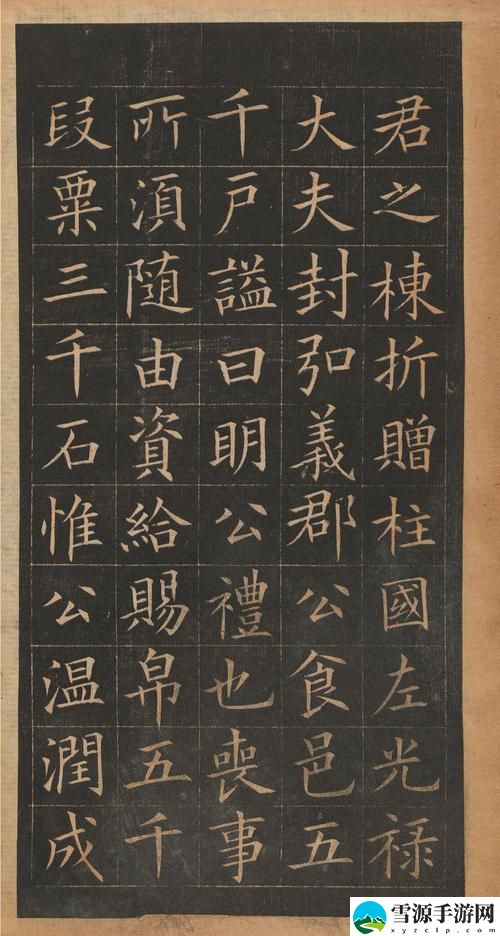 君之棟折贈柱國左光禄
大夫封弘義郡公食邑五
千戸謚曰明公禮也喪事
所湏随由資給賜帛五千
段粟三千石惟公温潤成
雪源手游网
xyzclp.com